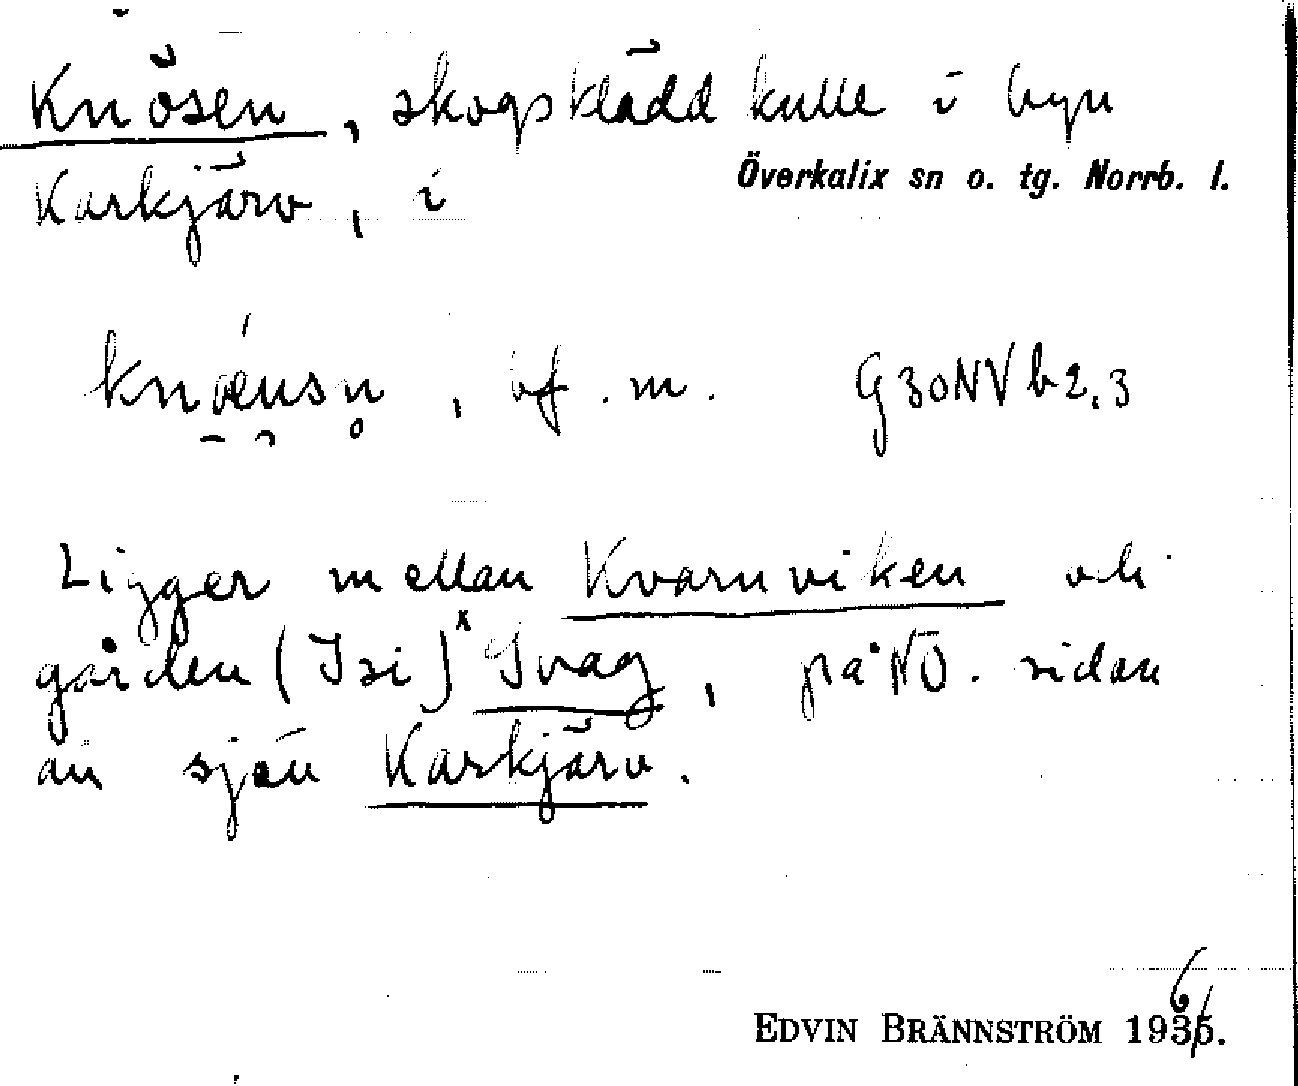 Knösen, skogsklädd kulle i byn
Karkjärv, i Överkalix sn o. tg. Norrb. l.
knœ́usn̥, bf. m. G30NVb2.3
Ligger mellan Kvarnviken och
gården (Isi)ˣ Ivag, på NÖ. sidan
av sjön Karkjärv.
EDVIN BRÄNNSTRÖM 1936.